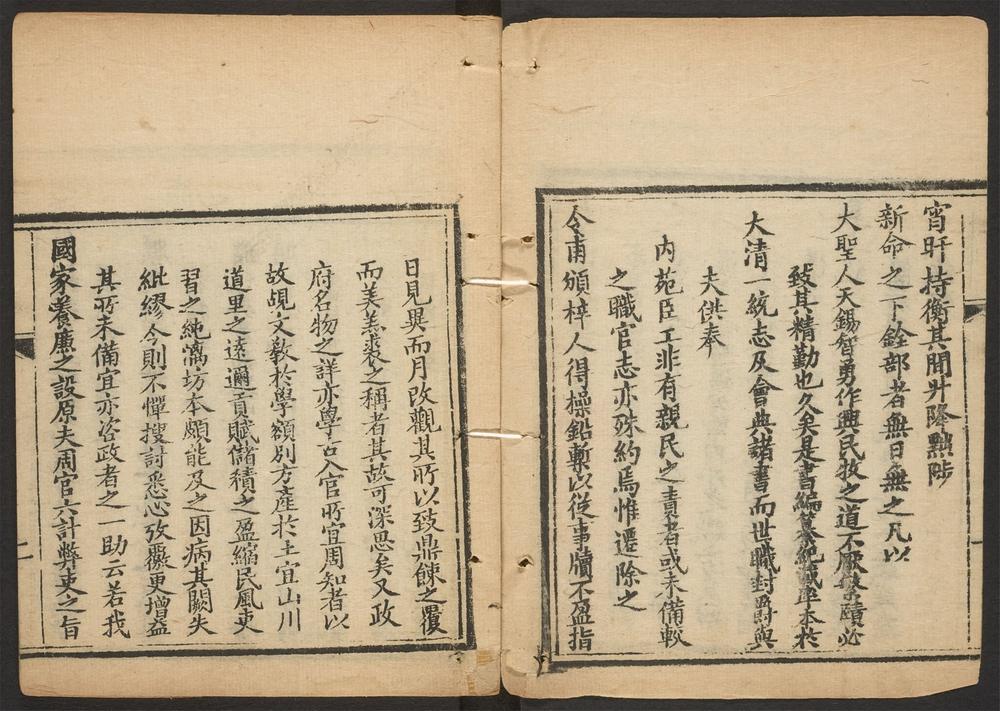 宵旰持衡其間升降黜陟
新命之下銓部者無日無之凡以
大聖人天錫智勇作興民牧之道不厭繁賾必
致其精勤也久矣是書編纂紀載率本於
大清一統志及會典諸書而世職封爵與
夫供奉
內苑臣工非有親民之責者或未備較
之職官志亦殊約焉惟遷除之
令甫頒梓人得操鉛槧以從事牘不盈指
日見異而月改觀其所以致鼎餗之覆
而美羔裘之稱者其故可深思矣又政
府名物之詳亦學古入官所宜周知者以
故覘文敎於學額別方產於土宜山川
道里之遠邇貢賦儲積之盈縮民風吏
習之純澆坊本頗能及之因病其闕失
紕繆今則不憚搜討悉心攷覈更增益
其所未備宜亦咨政者之一助云若我
國家養廉之設原夫周官六計弊吏之旨
二